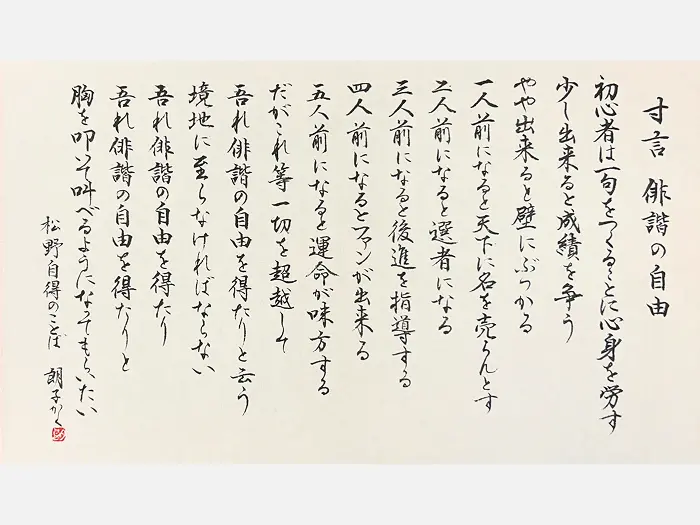 寸言 俳諧の自由
初心者は一句をつくることに心身を労す
少し出来ると成績を争う
やや出来ると壁にぶつかる
一人前になると天下に名を売らんとす
二人前になると選者になる
三人前になると後進を指導する
四人前になるとファンが出来る
五人前になると運命が味方する
だがこれ等一切を超越して
吾れ俳諧の自由を得たりと云う
境地に至らなければならない
吾れ俳諧の自由を得たり
吾れ俳諧の自由を得たりと
胸を叩いて叫べるようになってもらいたい
松野自得のことば 朗子かく